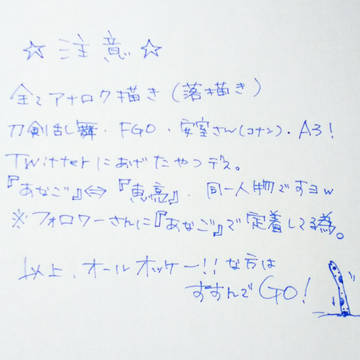 ☆ 注意 ☆
全てアナログ描き(落描き)
刀剣乱舞・FGO・安室さん(コナン)・A3!
Twitterにあげたやつデス。
『あなご』⇔『恵高』、同一人物ですヨw
※フォロワーさんに『あなご』で定着してる為。
以上、オールオッケー!!な方は
すすんでGO!